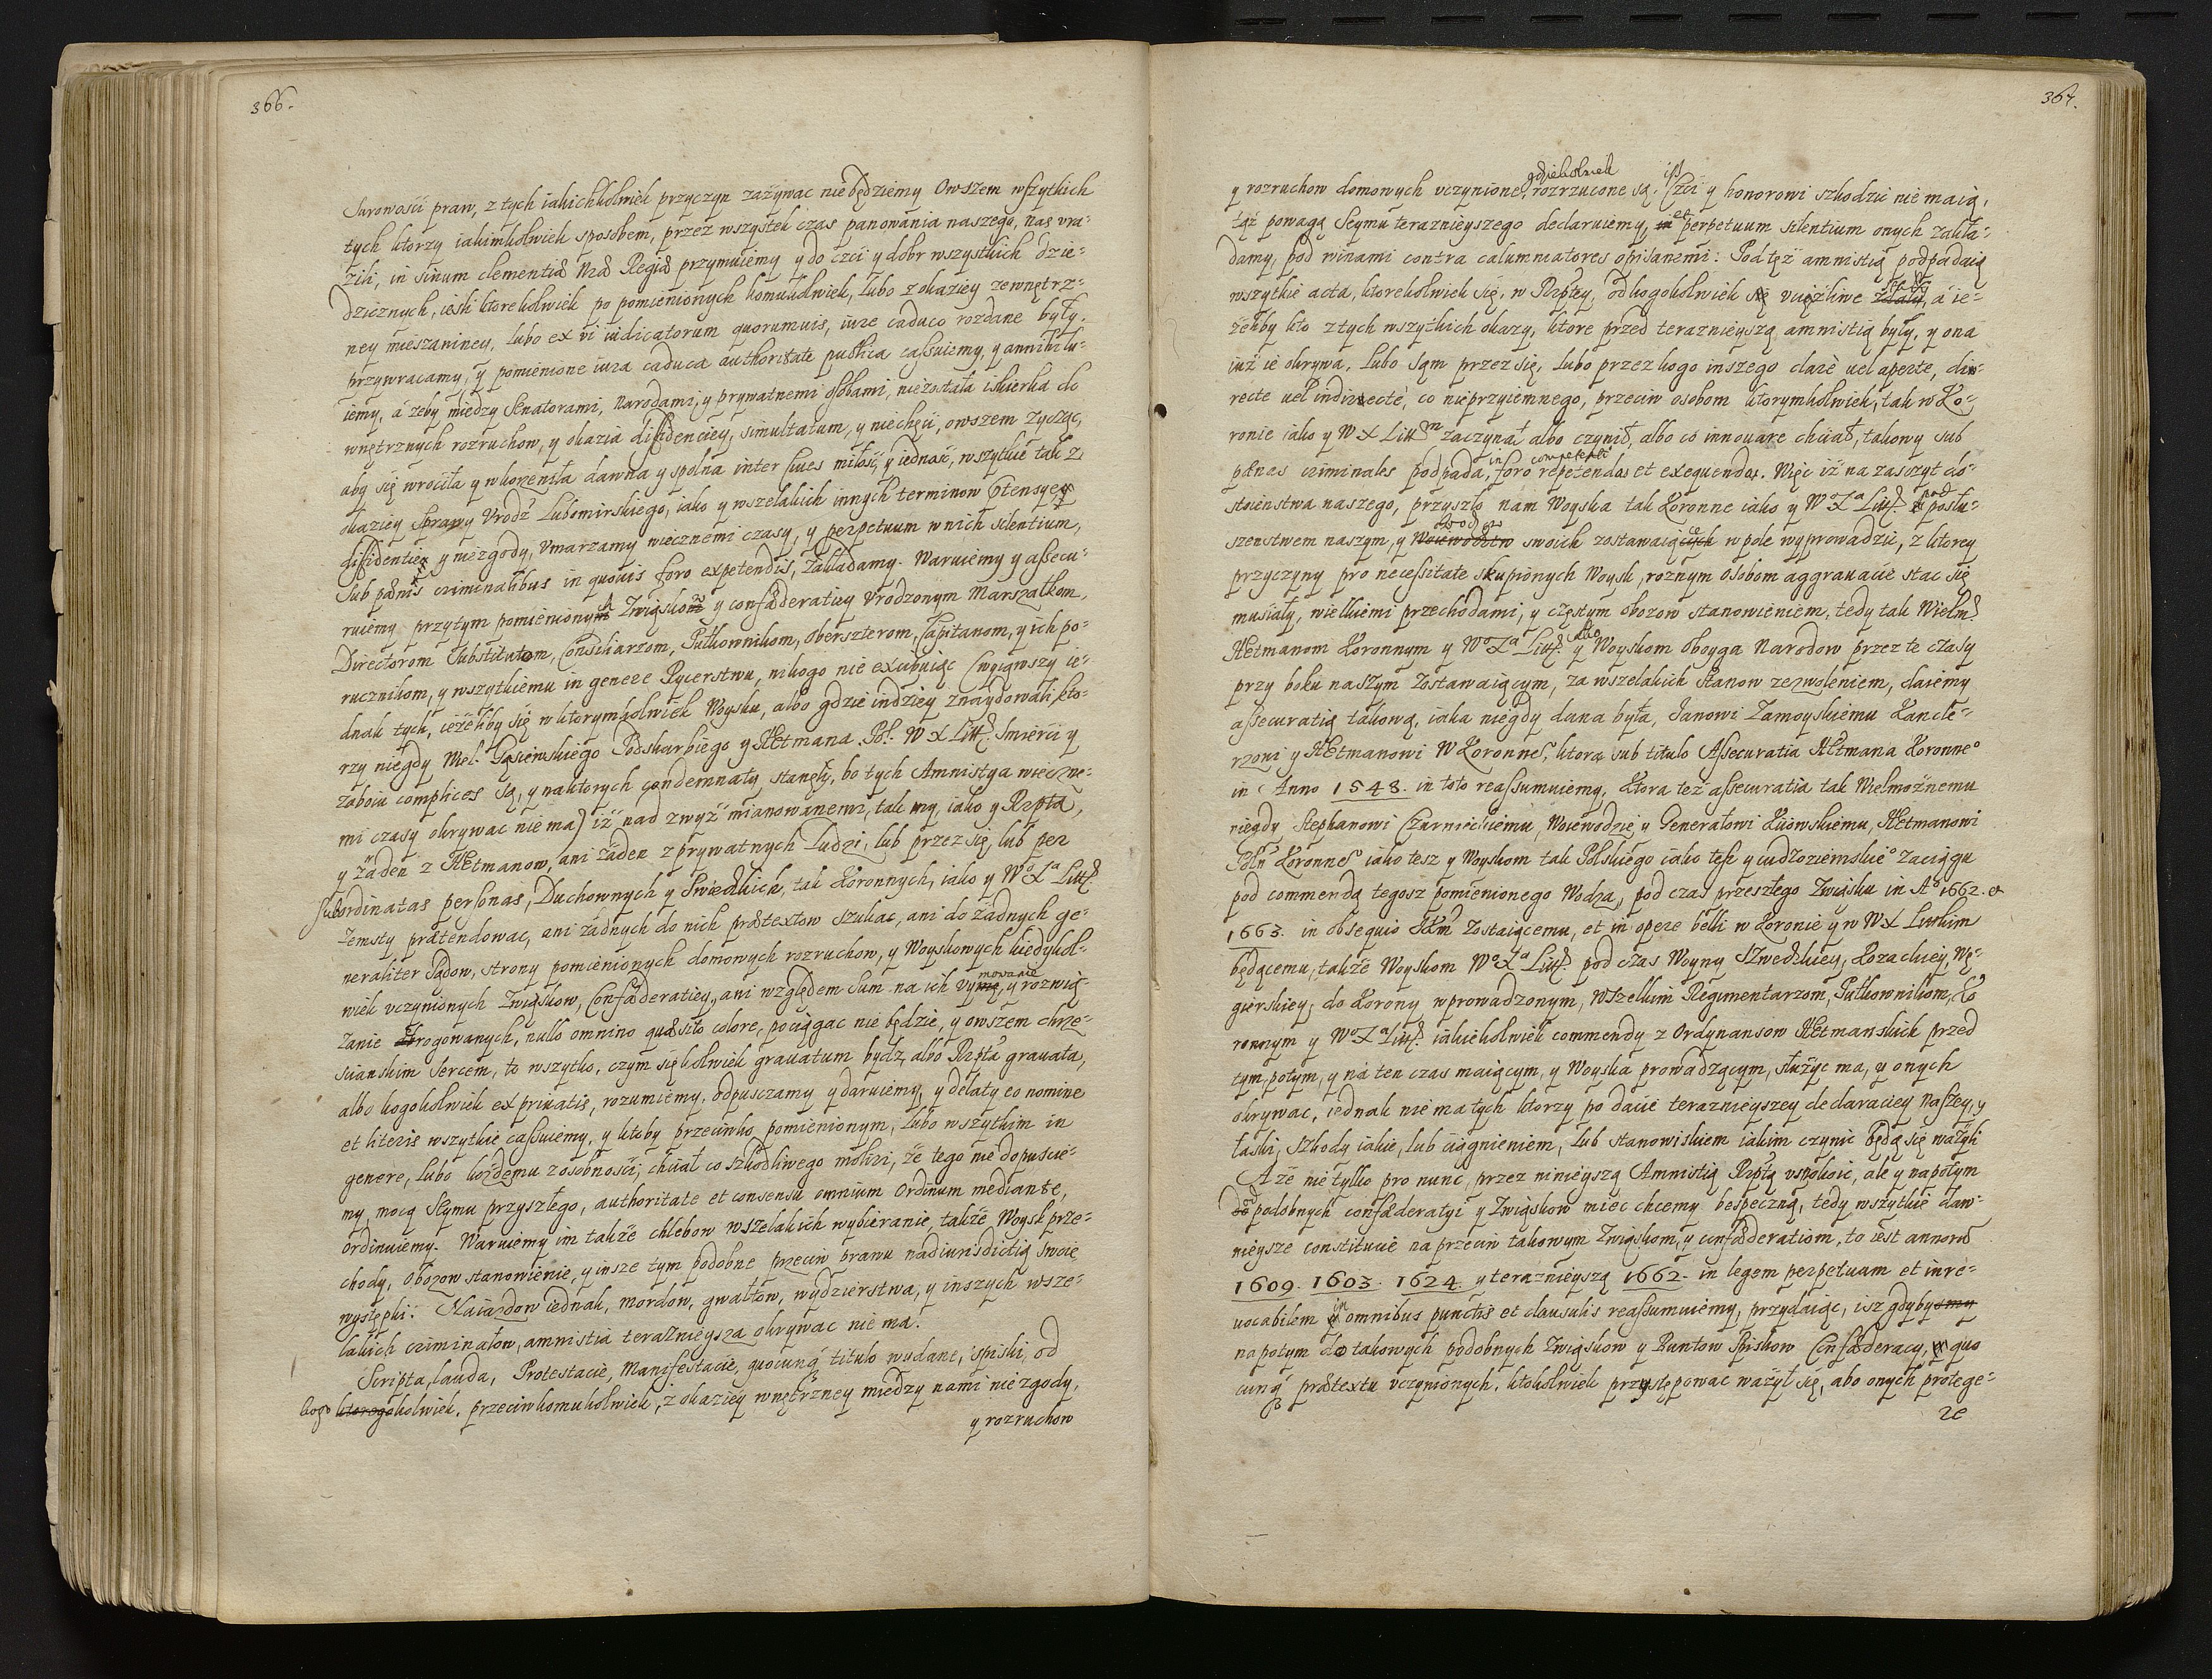 366.
Surowości praw, z tych iakichkolwiek przyczyn zażywac nie będziemy Owszem wszytkich
tych ktorzy iakimkolwiek sposobem, przez wszystek czas panowania naszego, nas vra-
zili, in sinum clementiæ Nræ Regiæ przymuiemy y do czci y dobr wszystkich dzie-
dzicznych, iesli ktorekolwiek po pomienionych komukolwiek, lubo z okaziey zewnętrz-
ney mieszaniney, lubo ex vi iudicatorum quorumuis, iure caduco rozdane były.
przywracamy, y pomienione iura caduca authoritate publica cassuiemy, y annihilu-
iemy, á zeby między Senatorami, Narodami, y prywatnemi osobami, nie została iskierka do
wnętrznych rozruchow, y okazia diffidenciey, simultatum, y niechęci, owszem zycząc,
aby się wrociła y wkorzeniła dawna y spolna inter ciues miłość, y iedność, wszytkie tak z
okaziey Sprawy Vrodz Lubomirskiego, iako y wszelakich innych terminow Offensye
diffidentie y niezgody, Vmarzamy wiecznemi czasy, y perpetuum w nich silentium,
Sub pœnis criminalibus in quouis foro expetendis, Zakładamy. Waruiemy y assecu-
ruiemy przytym pomienionym Zwiąskom y confæderatiey Vrodzonym Marszałkom,
Directorom Substitutom, Consiliarzom, Pułkownikom, Oberszterom, Capitanom, y ich po-
rucznikom, y wszytkiemu in genere Rycerstwu, nikogo nie excypuiąc (wyiąwszy ie-
dnak tych, ieżeliby się w ktorymkolwiek Woysku, albo gdzie indziey znaydowali kto-
rzy niegdy Wel. Gąsiewskiego Podskarbiego y Hetmana Pol: W X Litt. Smierci y
zaboiu complices są, y na ktorych condemnaty stanęły, bo tych Amnistya wieczne-
mi czasy okrywac nie ma) iż nad zwyż mianowanemi, tak my, iako y Rzpta,
y żaden z Hetmanow, ani żaden z prywatnych Ludzi, lub przez się, lub per
subordinatas personas, Duchownych y Swiedzkich, tak Koronnych, iako y Wo Xa Litt.
zemsty prætendowac, ani żadnych do nich prætextow szukac, ani do żadnych ge-
neraliter Sądow, strony pomienionych domowych rozruchow, y Woyskowych kiedykol-
wiek vczynionych Zwiąskow, Confæderatiey, ani względem Sum na ich vymowanie y rozwią-
zanie erogowanych, nullo omnino quæsito colore, pociągac nie będzie, y owszem chrze-
scianskim Sercem, to wszytko, czym się kolwiek grauatum bydz, albo Rzpta grauata,
albo kogokolwiek ex priuatis, rozumiemy, odpusczamy y daruiemy, y delaty eo nomine
et literis wszytkie cassuiemy, y ktoby przeciwko pomienionym, lubo wszytkim in
genere, lubo każdemu z osobności, chciał co szkodliwego moliri, że tego nie dopuscie-
my, mocą Seymu przyszłego, authoritate et consensu omnium Ordinum mediante,
ordinuiemy. Waruiemy im także chlebow wszelakich wybieranie, także Woysk prze-
chody, Obozow stanowienie, y insze tym podobne przeciw prawu nad iurisdictią swoię
występki. Naiazdow iednak, mordow, gwałtow, wydzierstwa, y inszych wsze-
lakich criminałow, amnistia terażnieysza okrywac nie ma.
Scripta, lauda, Protestacie, Manifestacie, quocunq titulo wydane, spiski, od
kogo ktoregokolwiek, przeciw komukolwiek, z okaziey wnętrzney między nami niezgody,
y rozruchow
367.
y rozruchow domowych vczynione, gdziekolwiek rozrzucone są, iż Czci y honorowi szkodzic nie maią,
tąż powagą Seymu teraznieyszego declaruiemy, et perpetuum silentium onych zakła-
damy, pod winami contra calumniatores opisanemi: Pod tęż amnistią podpadaią
wszytkie acta, ktorekolwiek się, w Rzptey, od kogokolwiek vciążliwe zdały, á ie-
żeliby kto z tych wszytkich okazy, ktore przed teraznieyszą amnistią były, y ona
iuż ie okrywa, lubo sąm przez się, lubo przez kogo inszego clarè uel aperte, di-
recte uel indirectè, co nieprzyiemnego, przeciw osobom ktorymkolwiek, tak w Ko-
ronie iako y W X Litt zaczynał albo czynił, albo co innouare chciał, takowy sub
pœnas criminales podpada, in foro competenti repetendas et exequendas. Więc iż na zasczyt do-
stoienstwa naszego, przyszło nam Woyska tak Koronne iako y Wo Xa Litt. pod posłu-
szenstwem naszym, y Wodzow Woiewodztw swoich zostawaiące w pole wyprowadzic, z ktorey
przyczyny pro necessitate skupionych Woysk, roznym Osobom aggrauacie stac się
musiały, wielkiemi przechodami, y częstym obozow stanowieniem, tedy tak Wielm
Hetmanom Koronnym y Wo Xa Litt. iako y Woyskom oboyga Narodow przez te czasy
przy boku naszym zostawaiącym, za wszelakich Stanow zezwoleniem, daiemy
assecuratią takową, iaka niegdy dana była, Janowi Zamoyskiemu Kancle-
rzowi y Hetmanowi W Koronne, ktorą sub titulo Assecuratia Hetmana Koronneo
in Anno 1548. in toto reassumuiemy, Ktora też assecuratia tak Wielmożnemu
niegdy Stephanowi Czarnieckiemu, Woiewodzie y Generałowi Kiiowskiemu, Hetmanowi
Poln Koronne iako tesz y Woyskom tak Polskiego iako tesz y cudzoziemskieo zaciągu
pod commendą tegosz pomienionego Wodza, pod czas przeszłego Zwiąsku in Ao 1662. et
1663. in obsequio zostaiącemu, et in opere belli w Koronie y w W X Litskim
będącemu, także Woyskom Wo Xa Litt. pod czas Woyny Szwedzkiey, Kozackiey, Wę-
gierskiey, do Korony wprowadzonym, wszelkim Regimentarzom, Pułkownikom, Ko
ronnym y Wo Xa Litt. iakiekolwiek commendy z Ordynansow Hetmanskich przed
tym, potym, y na ten czas maiącym, y Woyska prowadzącym, służyc ma, y onych
okrywac, iednak nie ma tych ktorzy po dacie teraznieyszey declaraciey naszey, y
łaski, Szkody iakie, lub ciągnieniem, lub stanowiskiem iakim czynic będą się ważyli
A że nie tylko pro nunc, przez ninieyszą Amnistią Rzptą vspokoic, ale y napotym
od podobnych confæderatyi y Zwiąskow miec chcemy bespeczną, tedy wszytkie daw-
nieysze constitucie naprzeciw takowym Zwiąskom, y confæderatiom, to iest annorũ
1609. 1603. 1624. y teraznieyszą 1662. in legem perpetuam et irre-
uocabilem in omnibus punctis et clausulis reassumuiemy, przydaiąc, isz gdybysmy
napotym do takowych podobnych Zwiąskow y Buntow Spiskow Confæderacy, quo
cunq prætextu vczynionych, ktokolwiek przystępowac ważył się, abo onych protege-
re